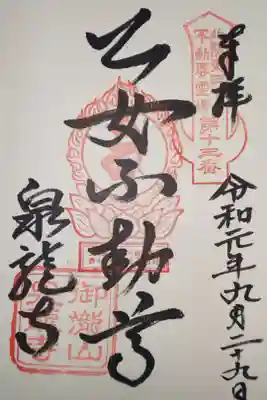 奉拝
令和元年九月二十九日
乙女不動尊
泉龍寺
不動尊霊場
第十三番
御瀧山
泉龍寺